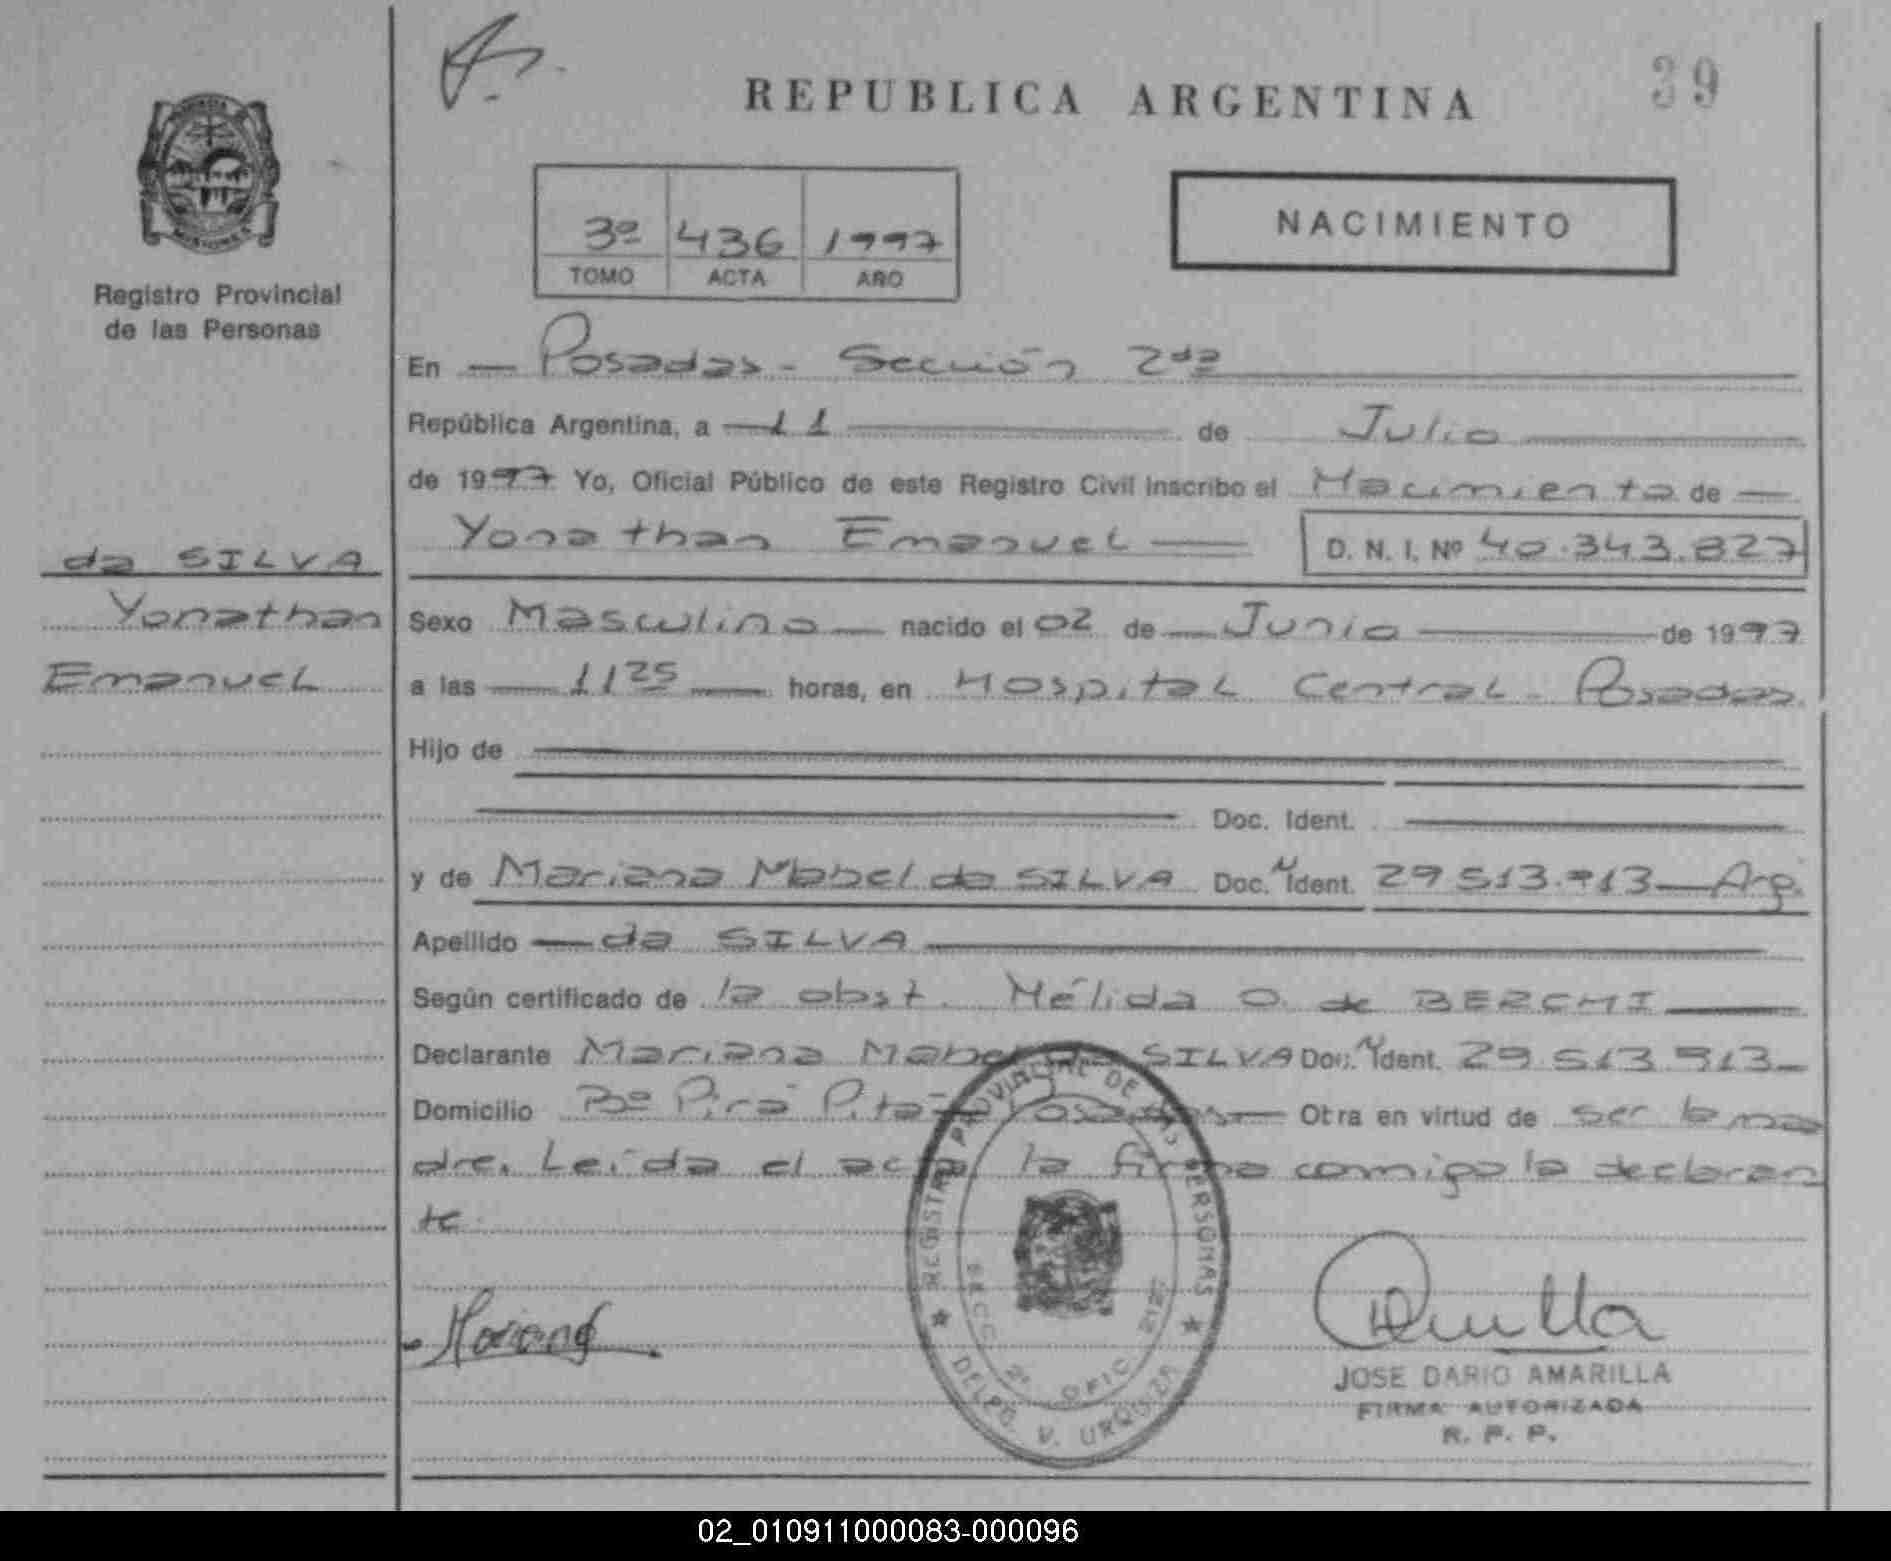 REPUBLICA ARGENTINA
39
3º 436 1997
TOMO ACTA AÑO
NACIMIENTO
Registro Provincial
de las Personas
En Posadas - Sección 2da
República Argentina, a 11 de Julio
de 1997 Yo, Oficial Público de este Registro Civil inscribo el Nacimiento de
Yonathan Emanuel D. N. I. Nº 40.343.827
da SILVA
Yonathan
Emanuel
Sexo Masculino nacido el 02 de Junio de 1997
a las 11 25 horas, en Hospital Central - Posadas.
Hijo de
Doc. Ident.
y de Mariana Mabel da SILVA Doc. N Ident. 29.513.913 - Arg.
Apellido da SILVA
Según certificado de la obst. Nélida O. de BERCHI
Declarante Mariana Mabel da SILVA Doc. N Ident. 29.513.913
Domicilio Bº Pirá Pitá - Posadas - Otra en virtud de ser la ma
dre. Leída el acta, la firma conmigo la declaran
te.
REGISTRO PROVINCIAL DE LAS PERSONAS
SECC. 2ª OFIC.
DELEG. V. URQUIZA
Mariana
JOSE DARIO AMARILLA
FIRMA AUTORIZADA
R. P. P.
02_010911000083-000096